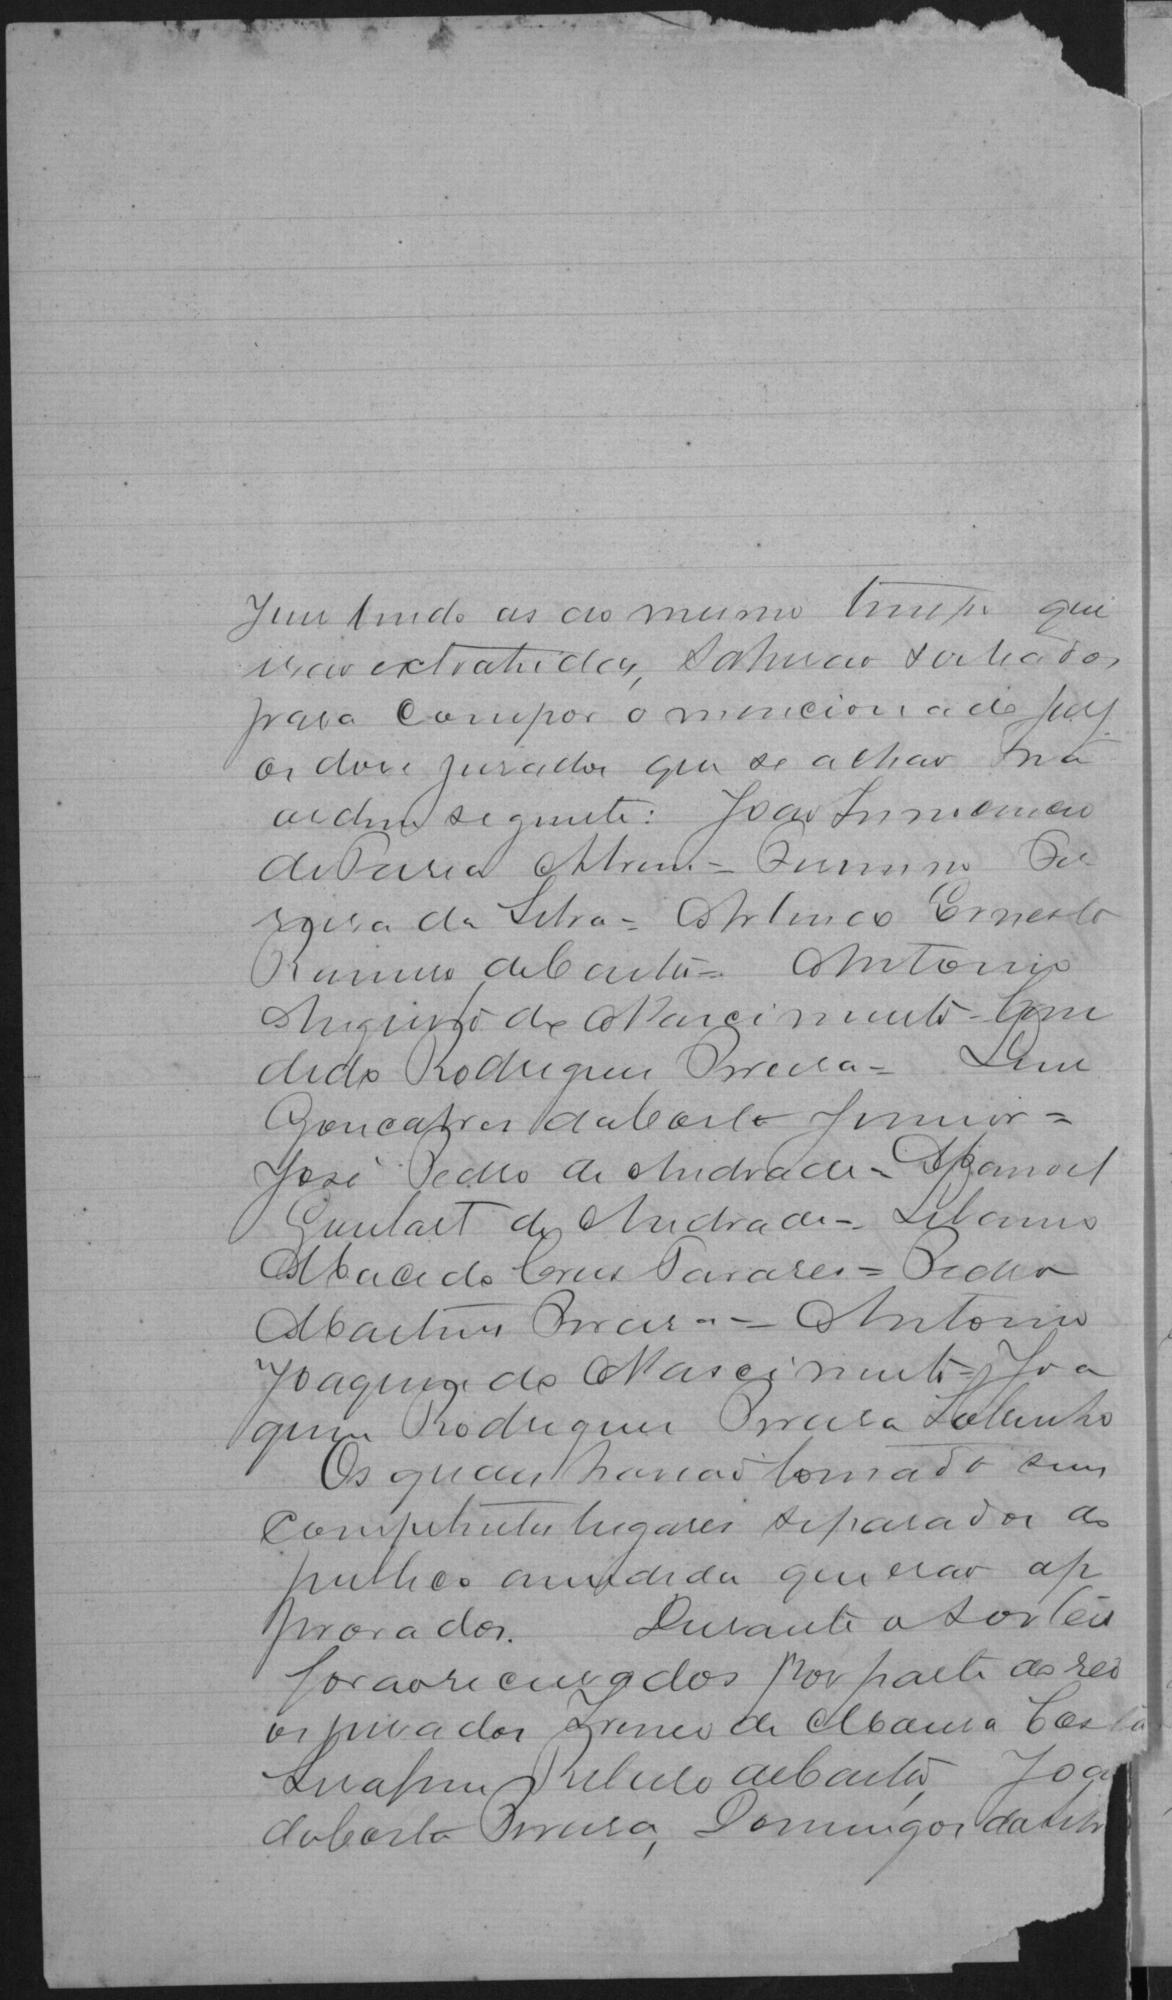 lendo as ao mesmo tempo que
erão extrahidas, sahirão sorteados
para compor o mencionado jury
os doze jurados que se achão na
ordem seguinte: João
de Faria = Firmino Pe
reira da Silva = Arlindo Ernesto
Ramiro de Castro = Antonio
Augusto do Nascimento = Can
dido Rodrigues Pereira = Luis
Gonçalves da Costa Junior =
José Pedro de Andrade = Manoel
Goulart de Andrade = Libanio
Macedo Cruz Tavares = Pedro
Martins Pereira = Antonio
Joaquim do Nascimento = Joa
quim Rodrigues Pereira Sobrinho
Os quaes havião tomado seus
competentes lugares separados do
publico a medida que erão ap
provados. Durante o sorteio
forão recusados por parte do reo
os jurados Ireneo de Moura Costa
Serafim Rabelo de Castro, João
da Costa Pereira, Domingos da Silv